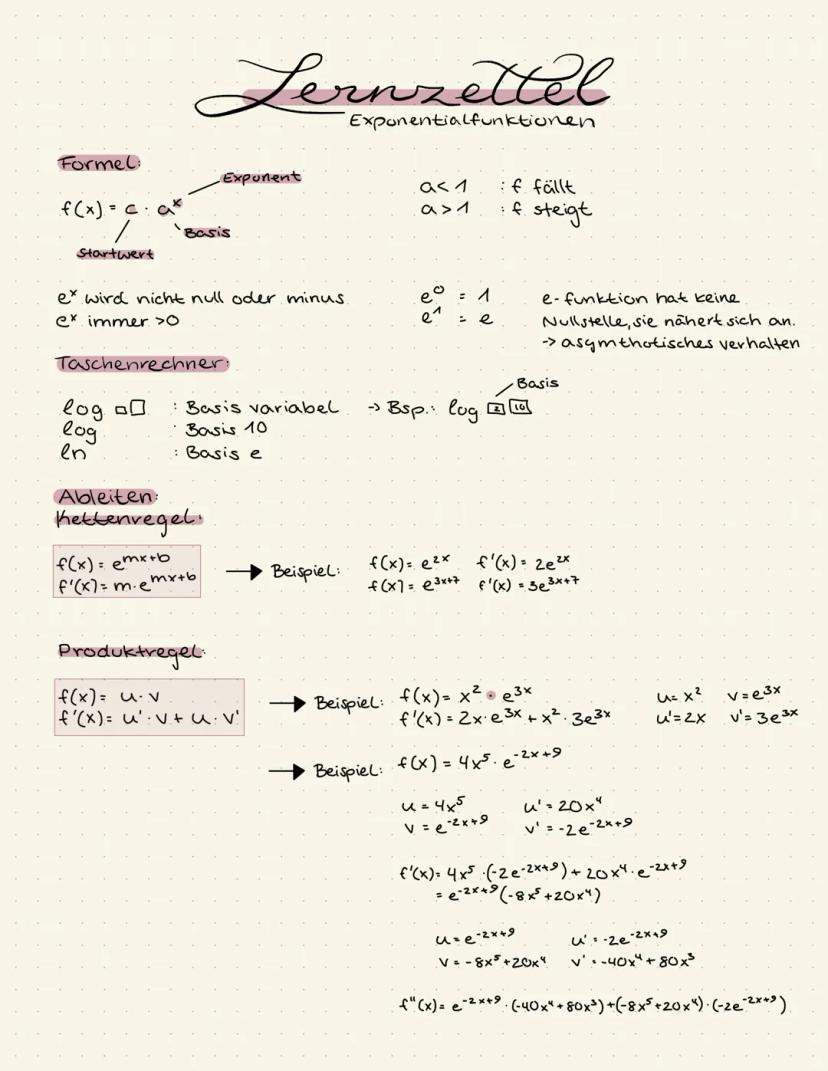 Lernzettel
Exponentialfunktionen
Formel:
Exponent
f(x) = c · aˣ
Basis
Startwert
a < 1 : f fällt
a > 1 : f steigt
eˣ wird nicht null oder minus
eˣ immer >0
e⁰ = 1
e¹ = e
e-funktion hat keine
Nullstelle, sie nähert sich an.
-> asymthotisches verhalten
Taschenrechner:
Basis
log □□ : Basis variabel -> Bsp.: log 2 10
log : Basis 10
ln : Basis e
Ableiten:
Kettenregel:
f(x) = e^mx+b
f'(x) = m·e^mx+b
Beispiel:
f(x) = e^2x f'(x) = 2e^2x
f(x) = e^3x+7 f'(x) = 3e^3x+7
Produktregel:
f(x) = u·v
f'(x) = u'·v + u·v'
Beispiel:
f(x) = x² · e^3x
f'(x) = 2x·e^3x + x²·3e^3x
u = x² v = e^3x
u' = 2x v' = 3e^3x
Beispiel:
f(x) = 4x⁵ · e^-2x+9
u = 4x⁵ u' = 20x⁴
v = e^-2x+9 v' = -2e^-2x+9
f'(x) = 4x⁵ · (-2e^-2x+9) + 20x⁴ · e^-2x+9
= e^-2x+9 (-8x⁵+20x⁴)
u = e^-2x+9 u' = -2e^-2x+9
v = -8x⁵+20x⁴ v' = -40x⁴+80x³
f''(x) = e^-2x+9 · (-40x⁴+80x³)+(-8x⁵+20x⁴)·(-2e^-2x+9)